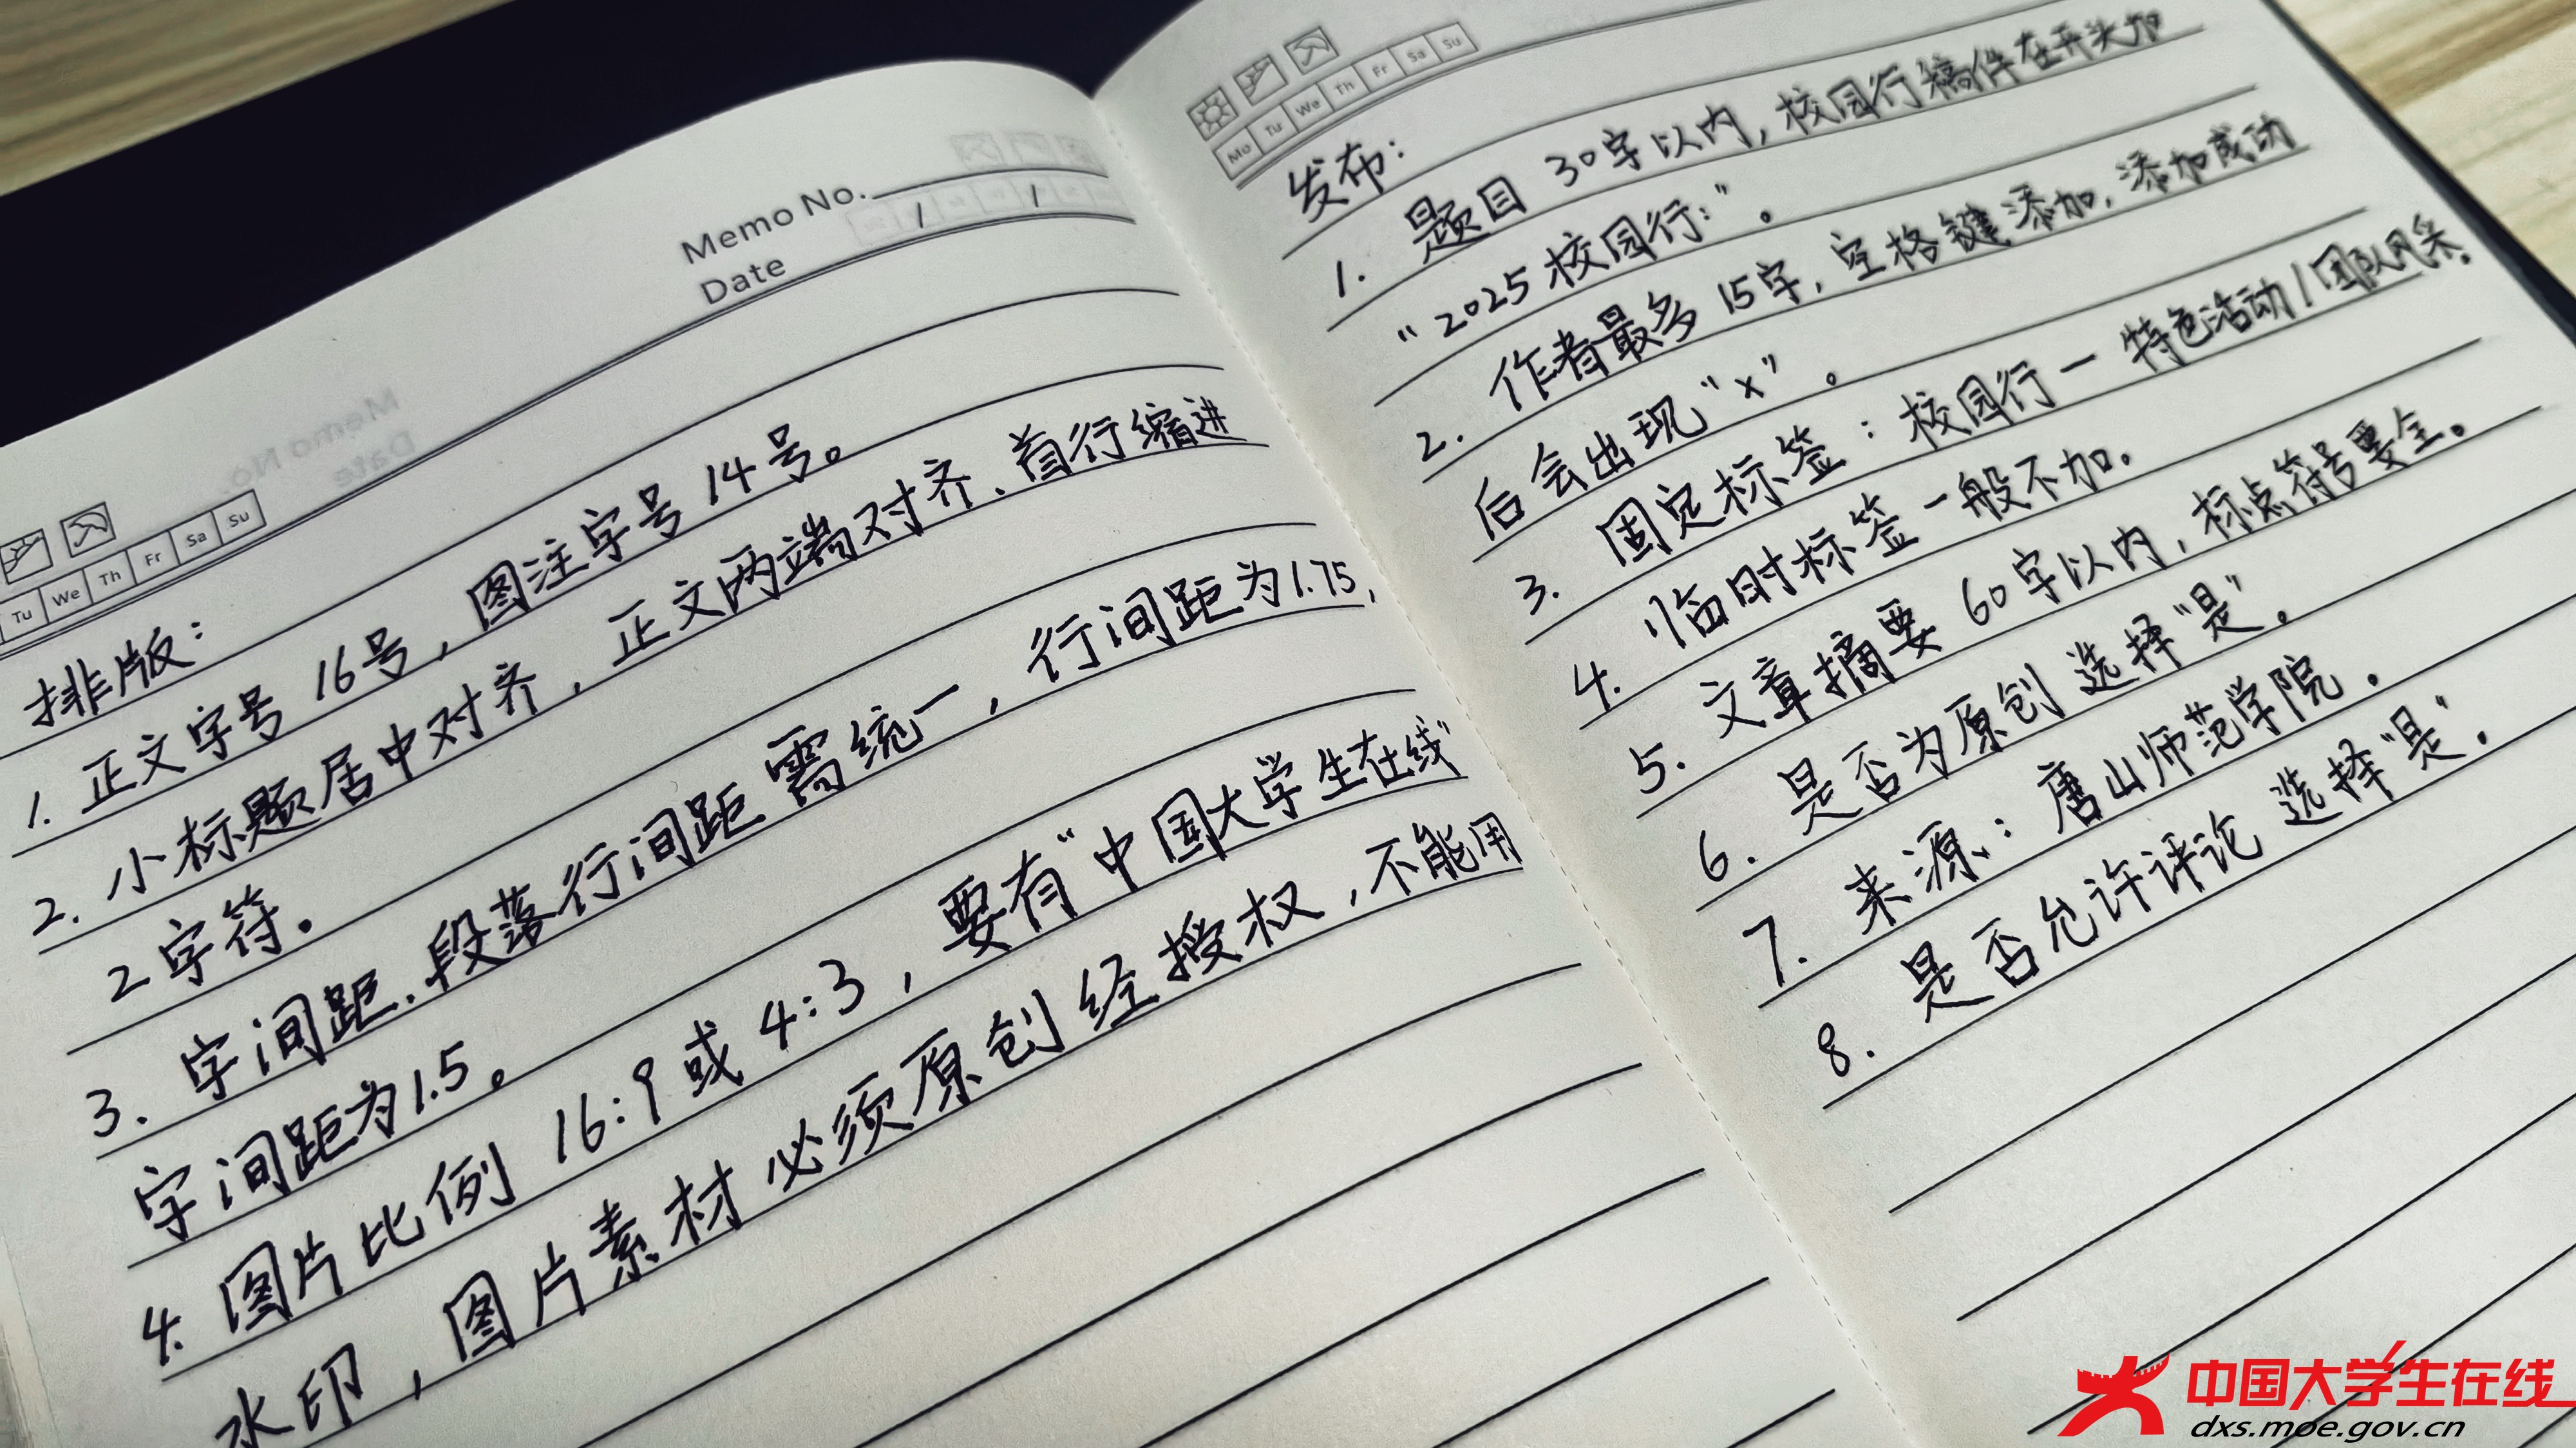 Memo No.
Date / /
Tu We Th Fr Sa Su
排版：
1. 正文字号 16号，图注字号 14号。
2. 小标题居中对齐，正文两端对齐、首行缩进
2字符。
3. 字间距、段落行间距需统一，行间距为1.75，
字间距为1.5。
4. 图片比例 16:9 或 4:3，要有“中国大学生在线”
水印，图片素材必须原创经授权，不能用
Mo Tu We Th Fr Sa Su
发布：
1. 题目 30字以内，校园行稿件在开头加
“2025校园行：”。
2. 作者最多 15字，空格键添加，添加成功
后会出现“x”。
3. 固定标签：校园行－特色活动/团队风采。
4. 临时标签一般不加。
5. 文章摘要 60字以内，标点符号要全。
6. 是否为原创 选择“是”。
7. 来源：唐山师范学院。
8. 是否允许评论 选择“是”。
中国大学生在线
dxs.moe.gov.cn